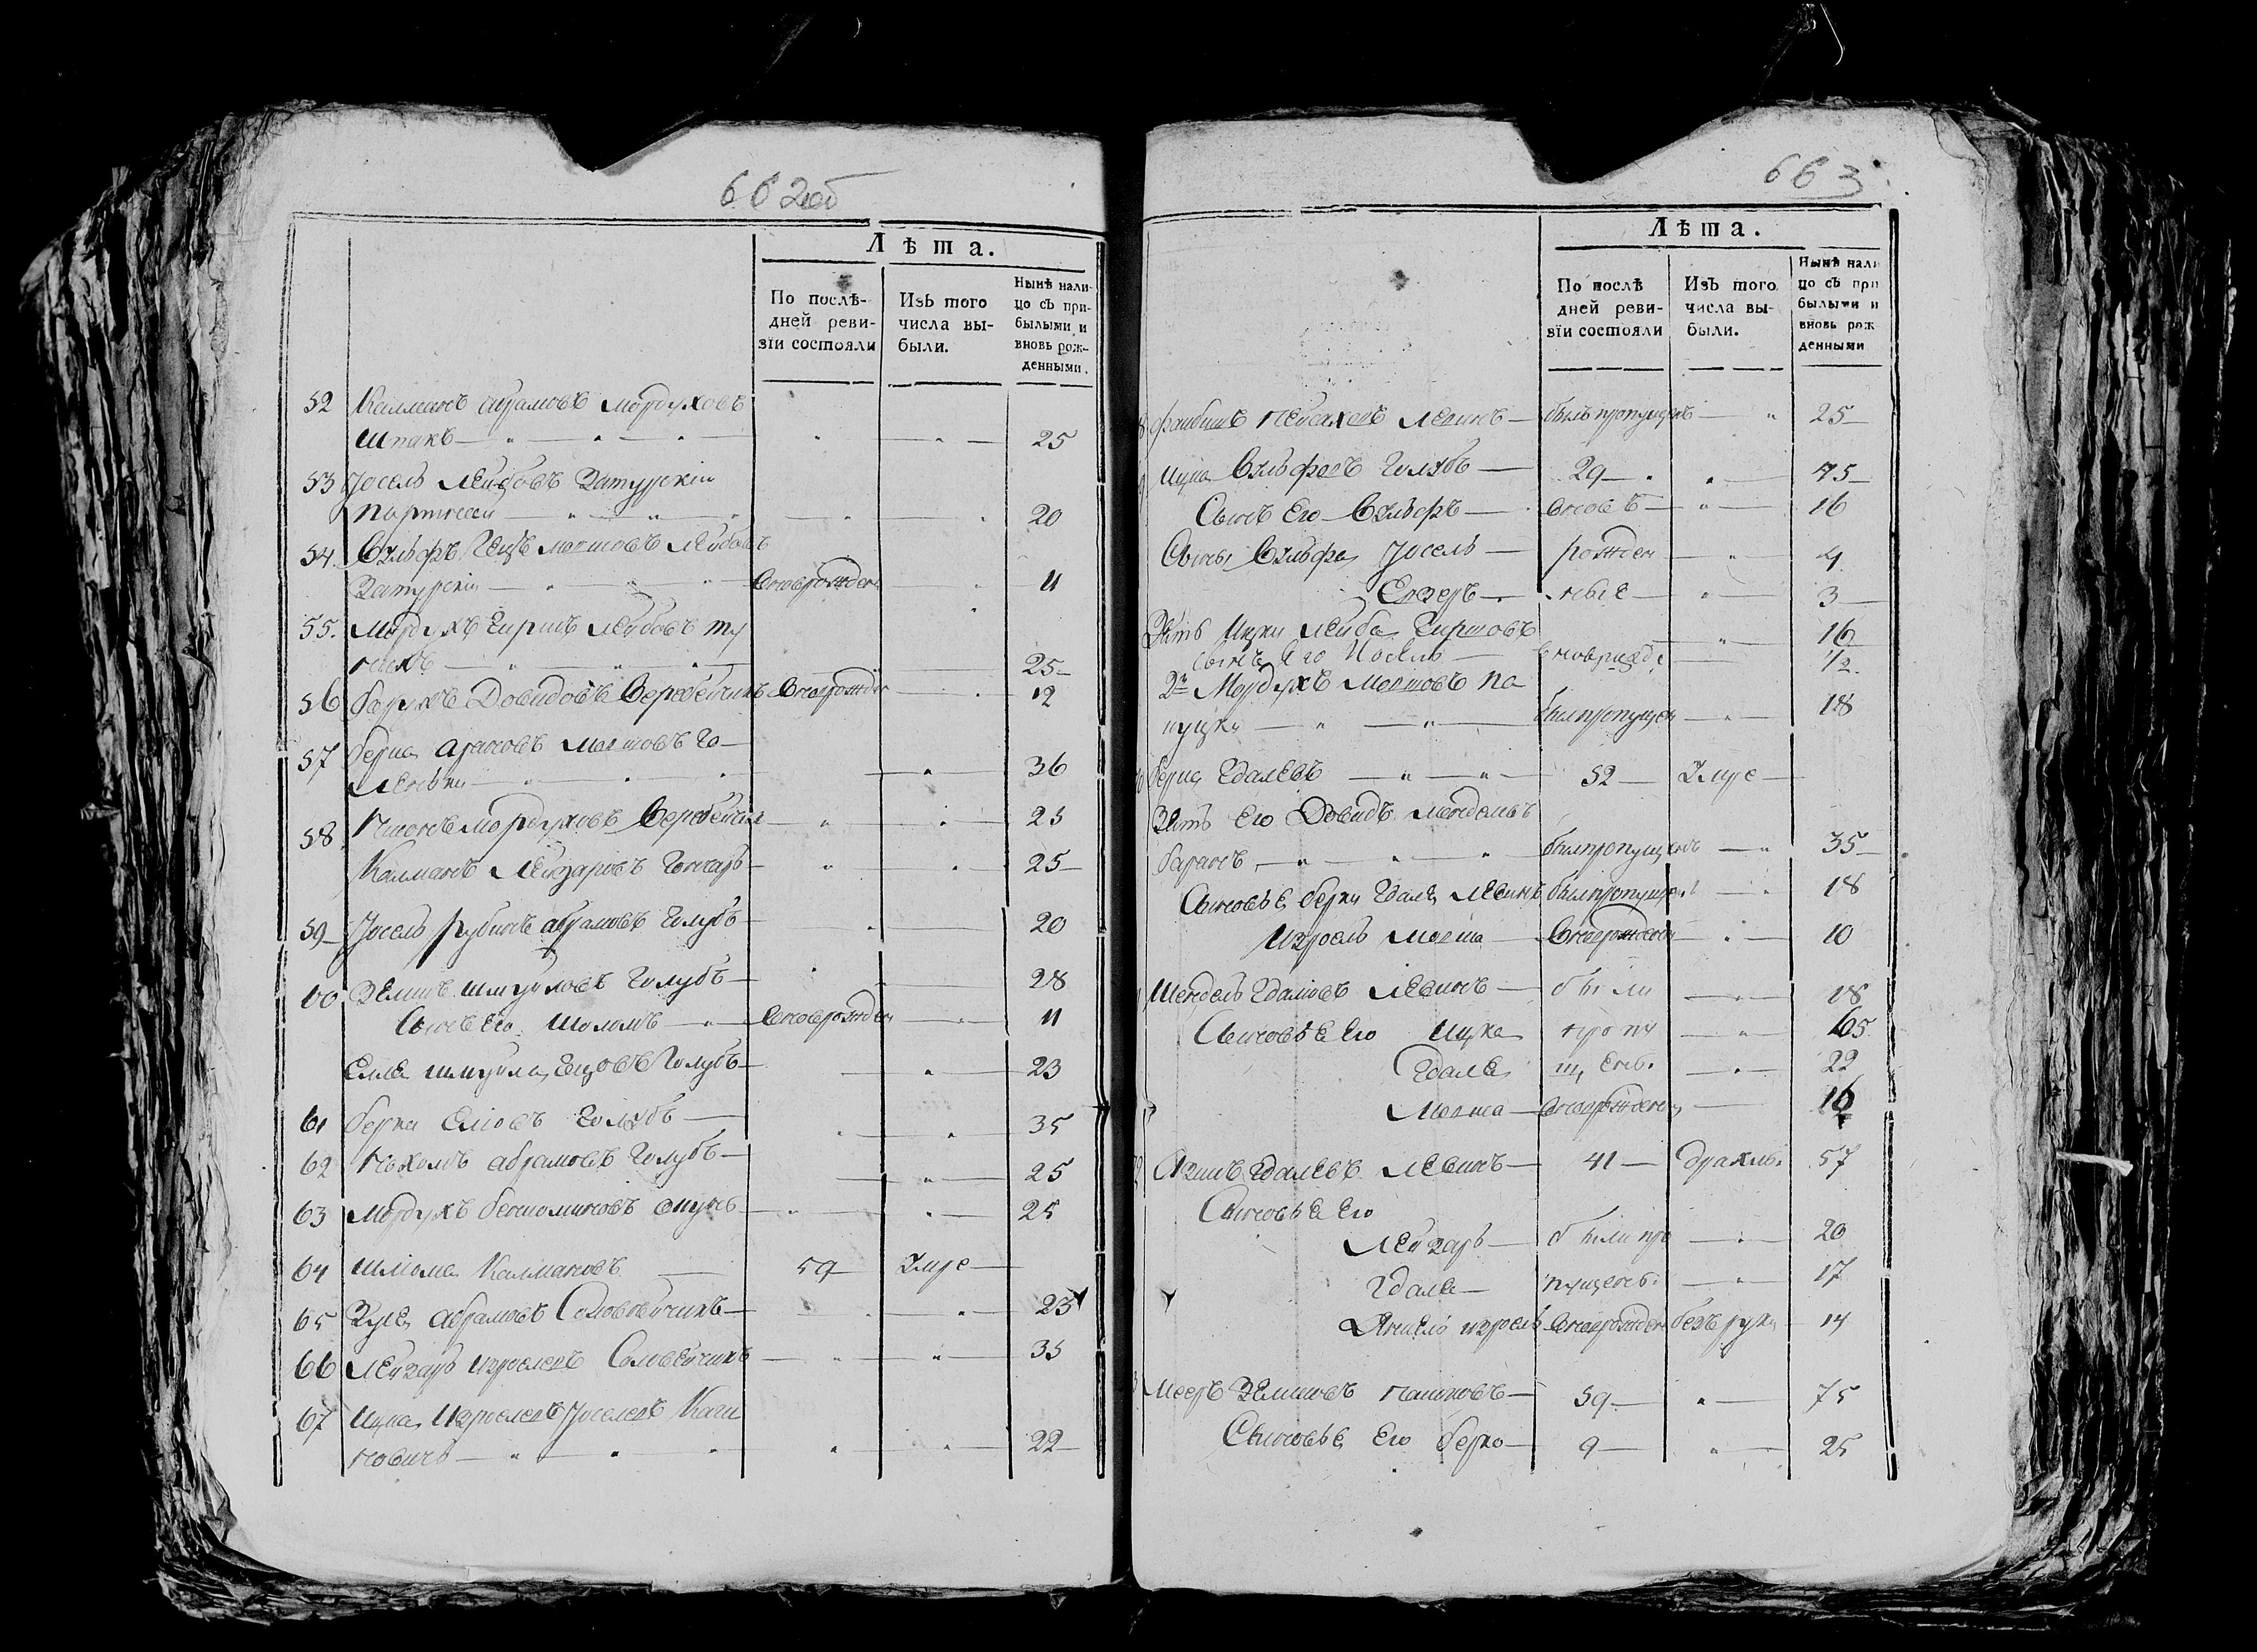 662об
Лѣта.
По послѣ-
дней реви-
зіи состояли
Изъ того
числа вы-
были.
Нынѣ нали-
цо съ при-
былыми и
вновь рож-
денными.
52 Калманъ абрамовъ мордуховъ
Шпакъ 25
53 Іосель Лейбовъ Затурскій
20
54 Вульфъ мовшовъ Лейбовъ
Затурскій вновьрожден 11
55. Мордухъ Гиршъ Лейбовъ
25
56 Борухъ Довидовъ Веребейчикъ вновьрожден 12
57 берка ароновъ мовшовъ
36
58 мордуховъ Веребейчик 25
Калманъ Лейзаровъ Гончаръ 25
59 Іосель рубинъ абрамовъ Голубъ 20
60 Зеликъ шмуйловъ Голубъ 28
Сынъ Его Шоломъ вновьрожден 11
Еля шмуйла Голубъ 23
61 берка Еліовъ Голубъ 35
62 Нохимъ абрамовъ Голубъ 25
63 Мордухъ беньоминовъ 25
64 шліома Калмановъ 59 Умре
65 абрамовъ Соловейчикъ 23
66 Лейзаръ израелевъ Соловейчикъ 35
67 Ицка Израелевъ Іоселевъ Каги
новичъ 22
663
Лѣта.
По послѣ
дней реви-
зіи состояли
Изъ того
числа вы-
были.
Нынѣ нали
цо съ при
былыми и
вновь рож
денными
фаибишъ Пейсаховъ Левинъ былъ пропущенъ 25
Ицка Вульфовъ Голубъ 29 45
Сынъ Его Вульфъ вновъ 16
Сыны Вульфа Іосель рожден 4
Елзеръ ные 3
Зять Ицки Лейба Гиршовъ 16
сынъ Его Іосель 1/2
2й Мордухъ Мовшовъ па
пушки былпропущен 18
берка Гдалевъ 52 Умре
Зять Его Довидъ мендельв
баранъ былпропущенъ 35
Сыновье берки Гдаля Левинъ былпропущен 18
Израель мовша вновьрожден 10
Мендель Гдаліовъ Левинъ были 18
Сыновье Его Ицка пропу 65
Гдаля щены 22
Мовша вновьрожден 16
Гдалевъ Левинъ 41 дряхлъ 57
Сыновье Его
Лейзаръ были про 20
Гдаля пущены 17
израель вновьрожден безъ руки 14
Мееръ Зелиовъ 59 75
Сыновье Его берко 9 25